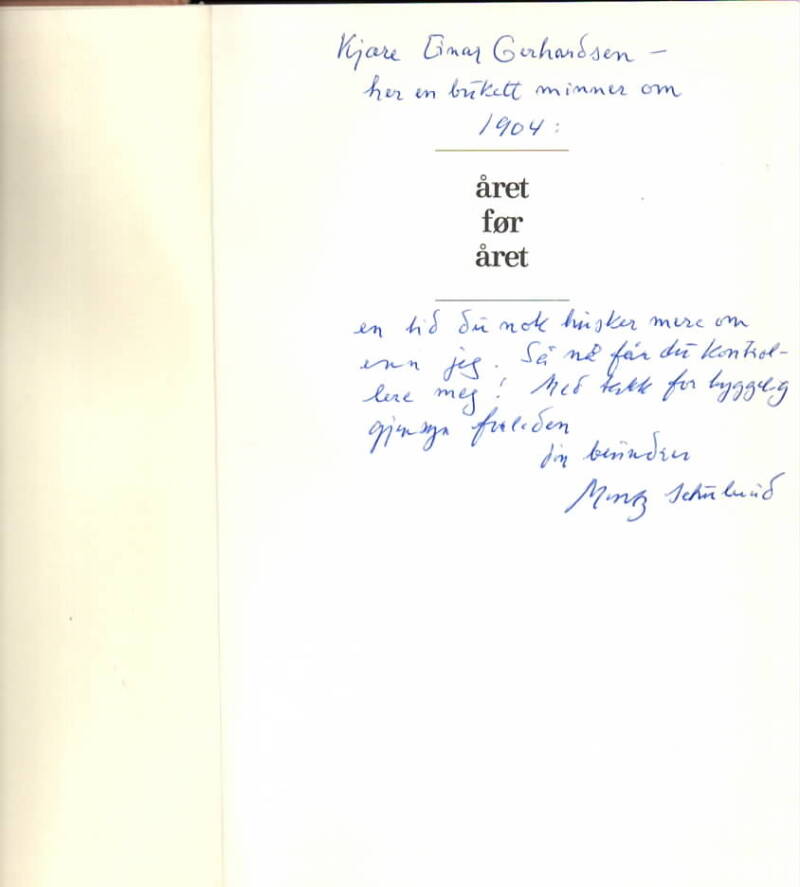 Kjære Einar Gerhardsen –
her en bukett minner om
1904:
året
før
året
en tid du nok husker mere om
enn jeg. Så nå får du kontrol-
lere meg! Med takk for hyggelig
gjensyn forleden
din beundrer